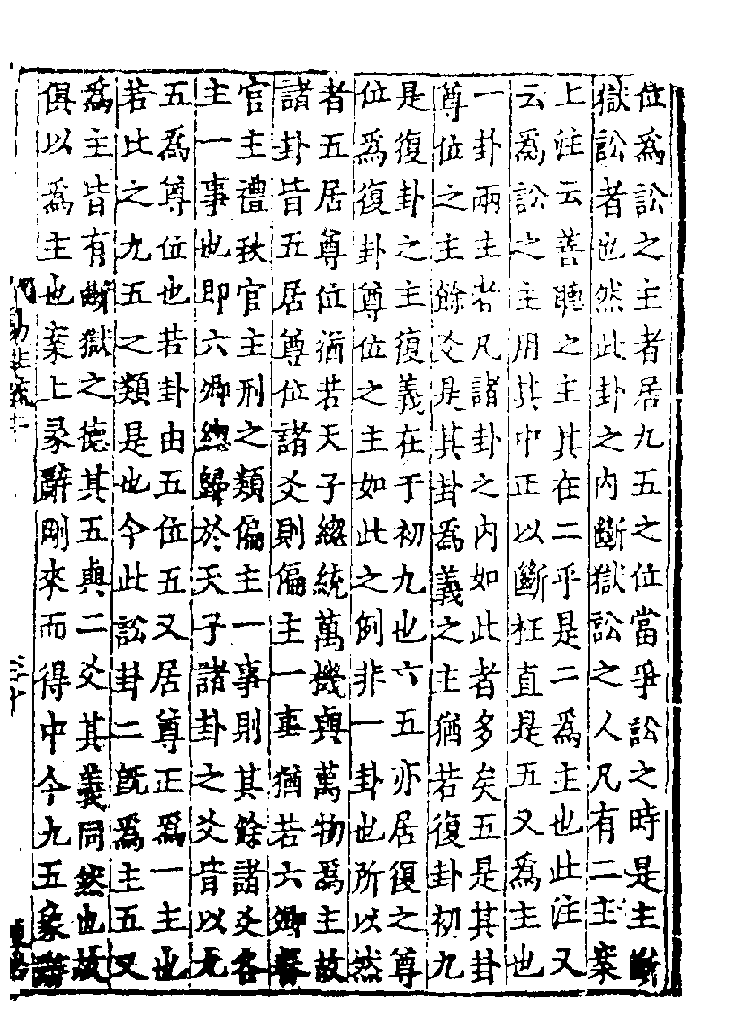 位爲訟之主者居九五之位當爭訟之時是主斷
獄訟者也然此卦之內斷獄訟之人凡有二主案
上注云善聽之主其在二乎是二爲主也此注又
云爲訟之主用其中正以斷枉直是五又爲主也
一卦兩主者凡諸卦之內如此者多矣五是其卦
尊位之主餘爻是其卦爲義之主猶若復卦初九
是復卦之主復義在于初九也六五亦居復之尊
位爲復卦尊位之主如此之例非一卦也所以然
者五居尊位猶若天子總統萬機與萬物爲主故
諸卦皆五居尊位諸爻則偏主一事猶若六卿春
官主禮秋官主刑之類偏主一事則其餘諸爻各
主一事也即六卿總歸於天子諸卦之爻皆以九
五爲尊位也若卦由五位五又居尊正爲一主也
若此之九五之類是也今此訟卦二既爲主五又
爲主皆有斷獄之德其五與二爻其義同然也故
俱以爲主也案上彖辭剛來而得中今九五象辭